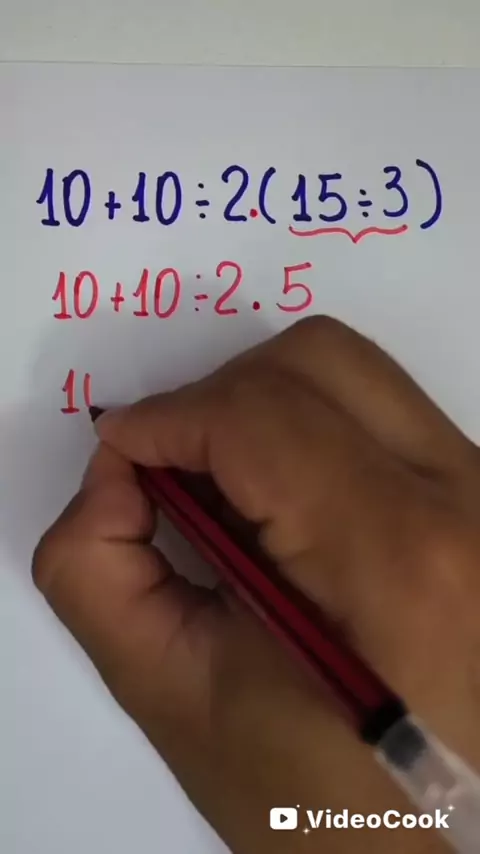 10+10÷2.(15÷3)
10+10÷2.5
10
VideoCook